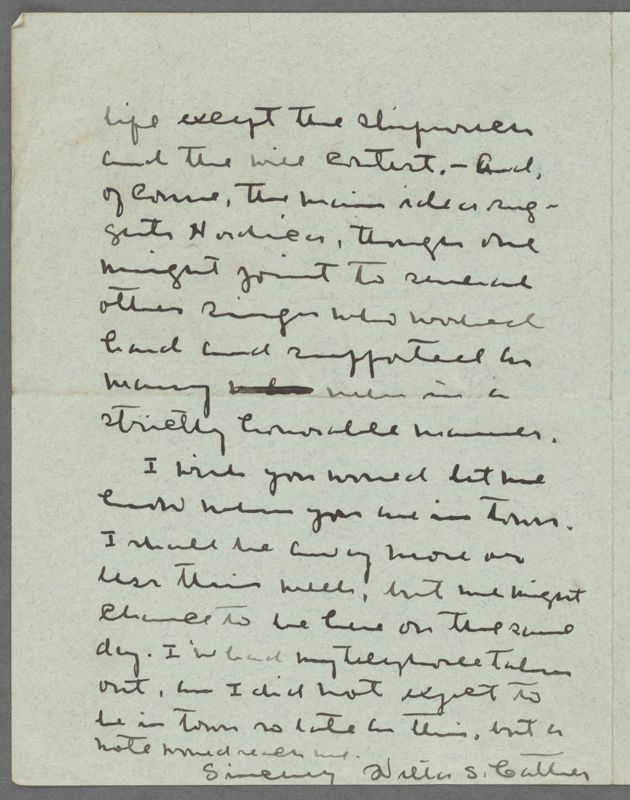 life except the shipwreck
and the will contest. — And,
of course, the main idea sug-
gests Nordica, though one
might point to several
other singers who worked
hard and supported as
many men in a
strictly honorable manner.
I wish you would let me
know when you are in town.
I shall be away more or
less this week, but we might
chance to be here on the same
day. I've had my telephone taken
out, as I did not expect to
be in town so late as this, but a
note would reach me.
Sincerely Willa S. Cather